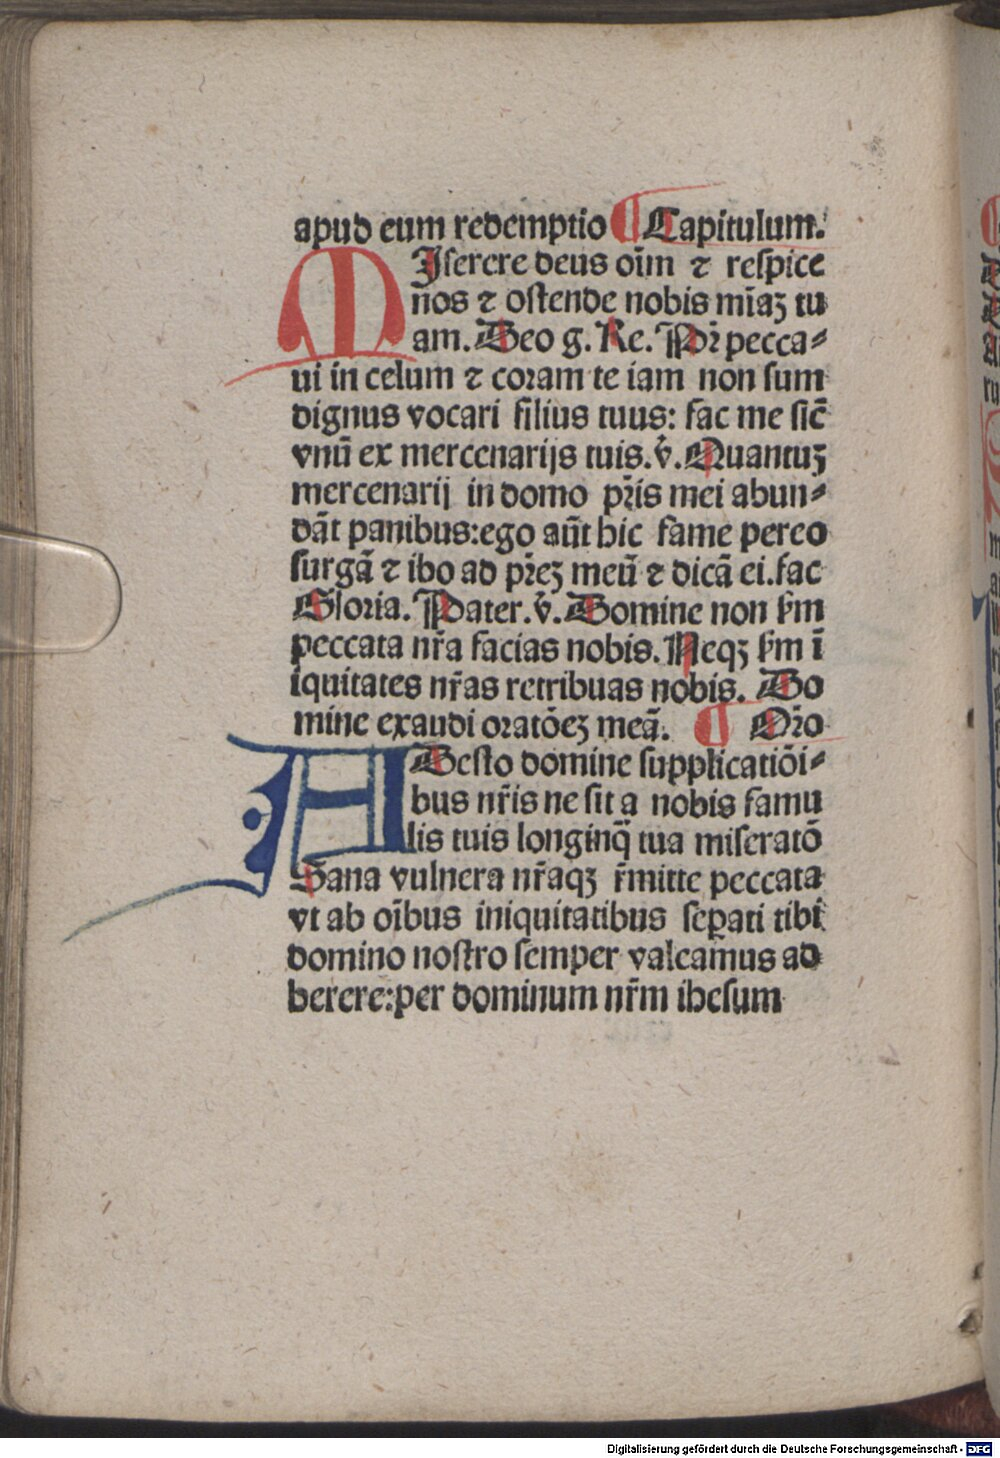 apud eum redemptio ¶ Capitulum.
MIserere deus oīm ⁊ respice
nos ⁊ ostende nobis mīaꝫ tu
am. Deo g. Re. Pr̄ pecca⸗
ui in celum ⁊ coram te iam non sum
dignus vocari filius tuus: fac me sic̄
vnū ex mercenarijs tuis. v̄. Quantuꝫ
mercenarij in domo pr̄is mei abun⸗
dāt panibus: ego aūt hic fame pereo
surgā ⁊ ibo ad pr̄eꝫ meū ⁊ dicā ei. fac
Gloria. Pater. v̄. Domine non ẜm
peccata nr̄a facias nobis. Neqꝫ ẜm ī
iquitates nr̄as retribuas nobis. Do
mine exaudi oratōeꝫ meā. ¶ Or̄o
ADesto domine supplicatiōi⸗
bus nr̄is ne sit a nobis famu
lis tuis longinq̄ tua miseratō
Sana vulnera nr̄aqꝫ r̄mitte peccata
vt ab oībus iniquitatibus seꝑati tibi
domino nostro semper valeamus ad
herere: per dominum nr̄m ihesum
Digitalisierung gefördert durch die Deutsche Forschungsgemeinschaft - DFG